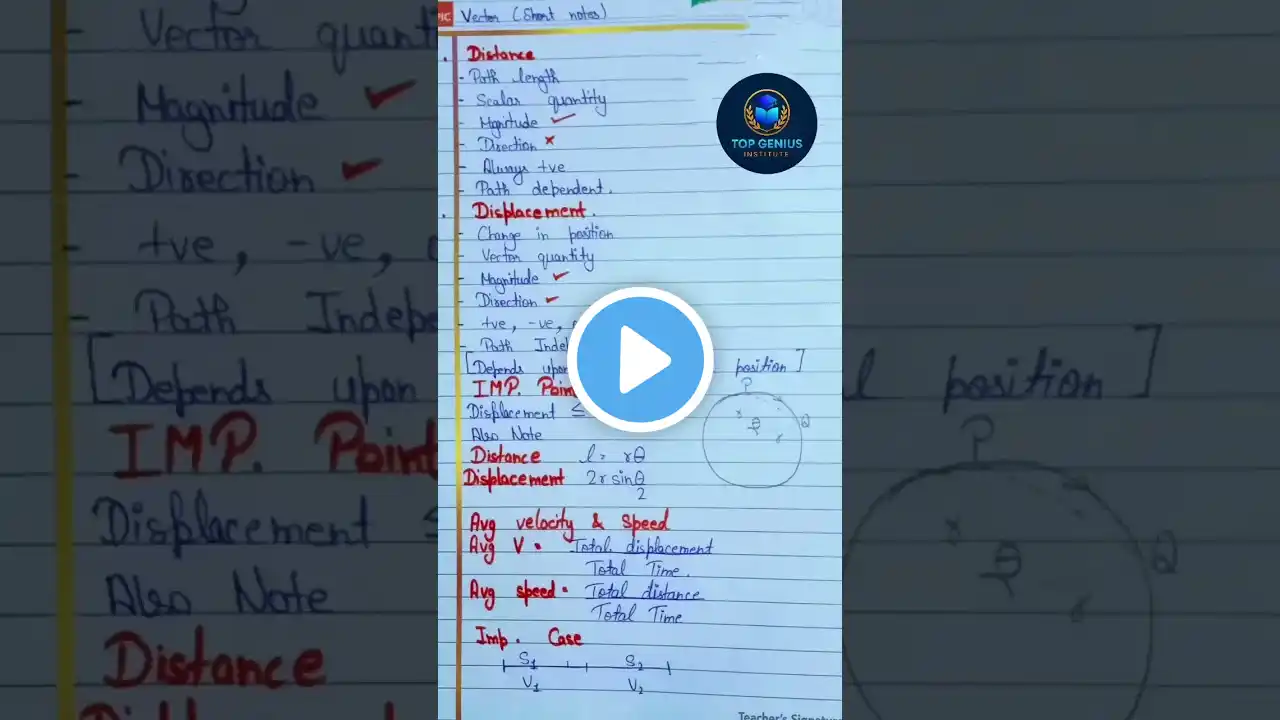 PIC Vector (Short notes)
. Distance
- Path length
- Scalar quantity
- Magnitude ✓
- Direction ×
- Always +ve
- Path dependent.
. Displacement.
- Change in position
- Vector quantity
- Magnitude ✓
- Direction ✓
- +ve, -ve,
- Path Inde
[Depends upon position]
IMP. Point
Displacement ≤
Also Note
Distance l = rθ
Displacement 2r sin θ
2
P
Q
Avg velocity & Speed
Avg V = Total displacement
Total Time.
Avg speed = Total distance
Total Time
Imp. Case
S1 S2
V1 V2
Teacher's Signature
TOP GENIUS
INSTITUTE
Vector quanti
- Magnitude ✓
- Direction ✓
- +ve, -ve,
- Path Indepe
[Depends upon l position]
IMP. Point
Displacement ≤
Also Note
Distance
P
Q